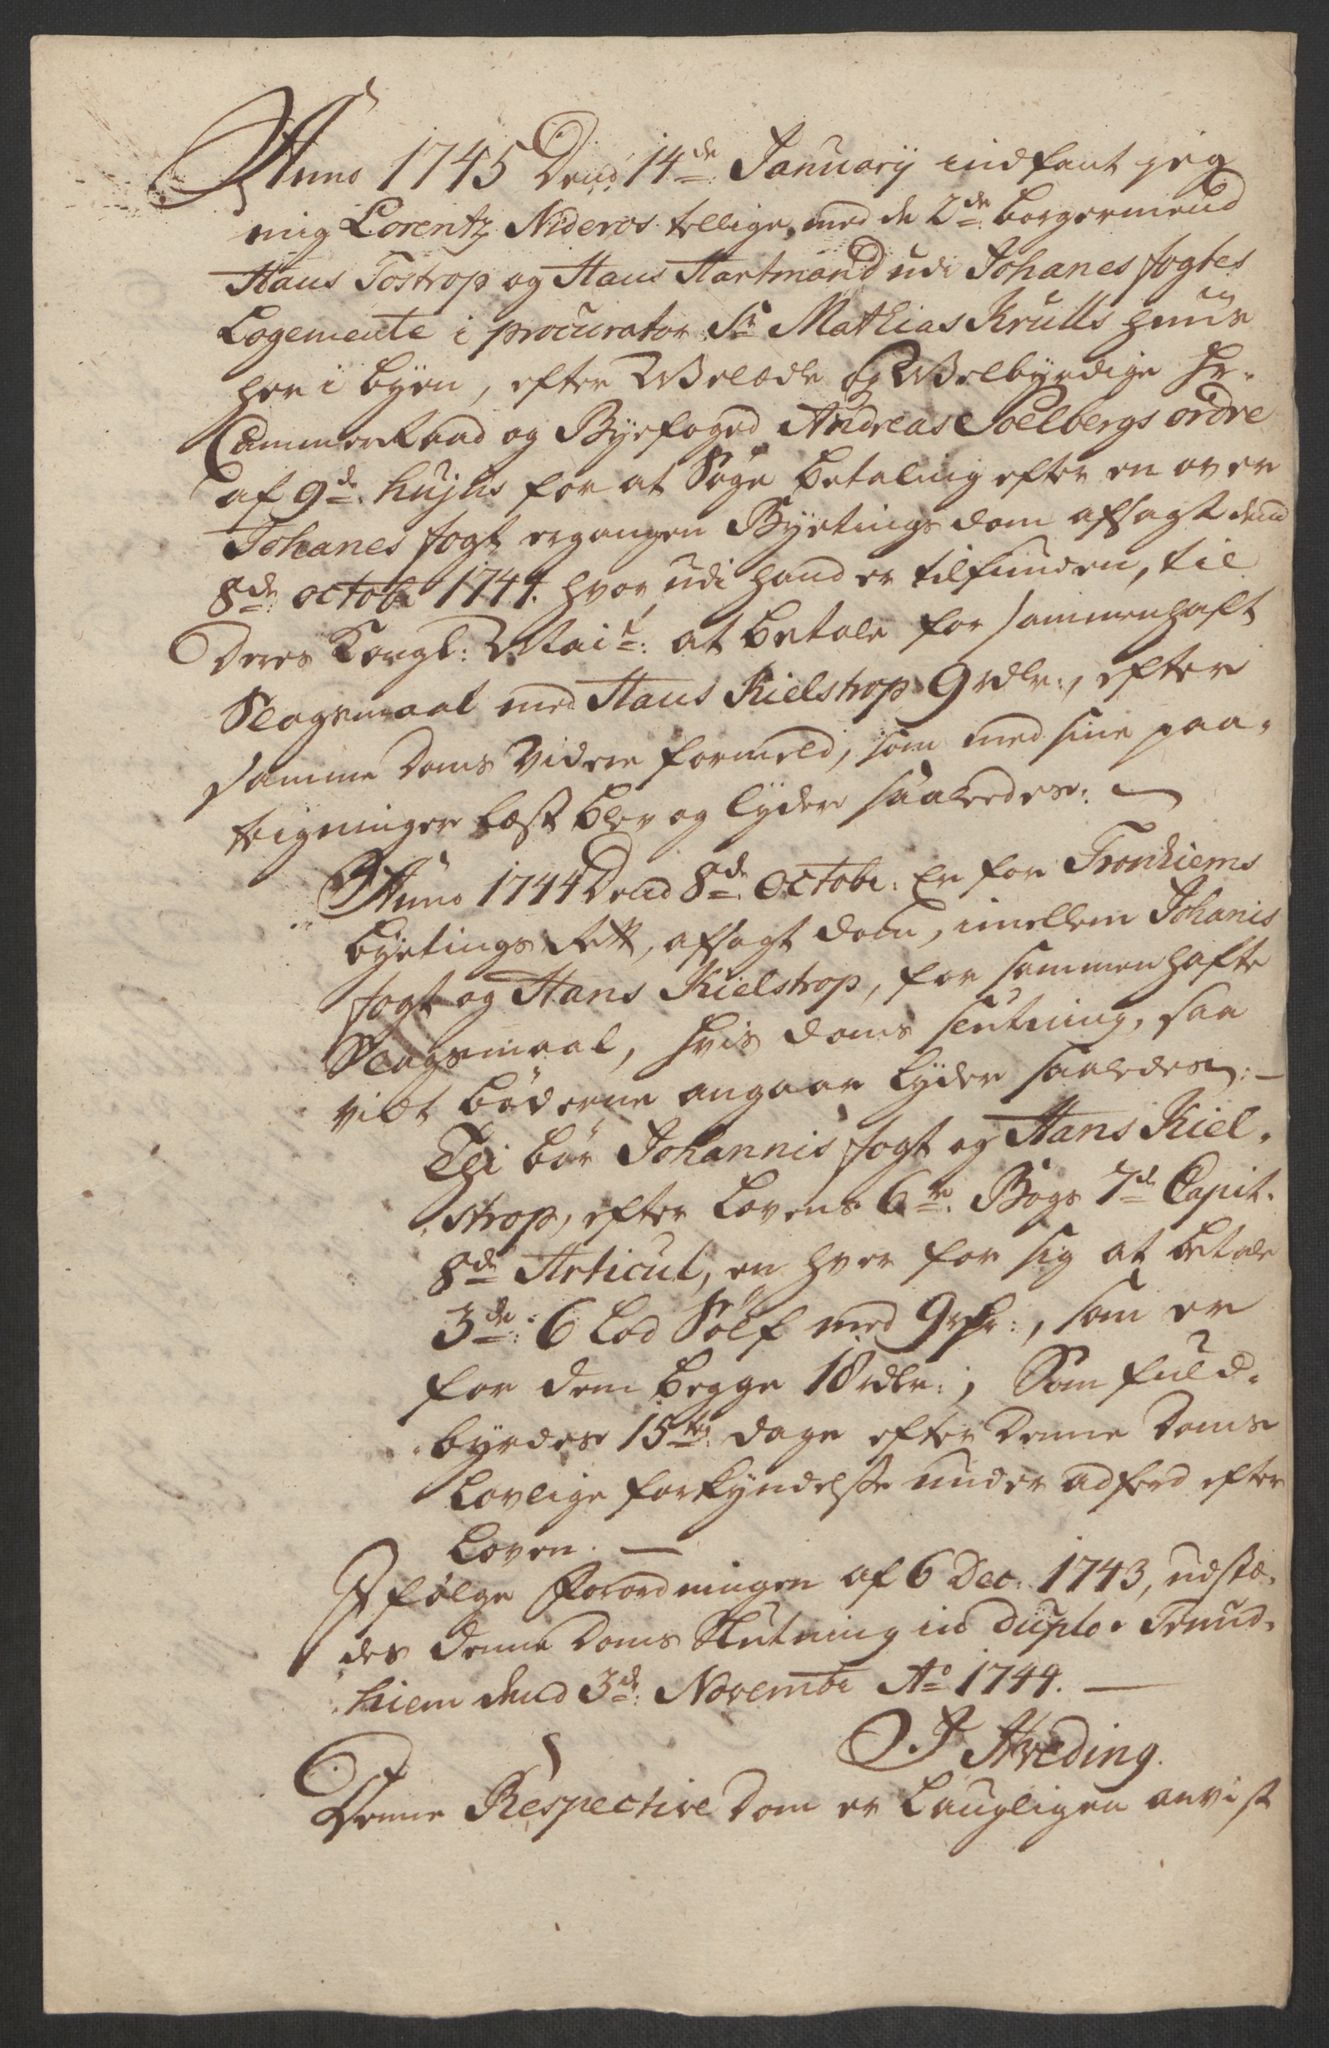 Anno 1745 Dend 14de Januarij indfant jeg
mig Lorentz Nideros tillige med de 2de borgermend
Hans Tostrop og Hans Hartmand udi Johanes fogtes
Logemente i procurator Sr Mathias Krulls huus
her i byen, efter WelÆdle og Welbyrdige Hr.
CammerRaad og Byefoged Andreas Soelbergs ordre
af 9de hujus for at Søge betaling efter en over
Johanes fogt ergangen Byetings dom afsagt dend
8de octobr 1744. hvor udi hand er tilfunden, til
Deres Kongl: Mait: at betale for sammenhaft
Slagsmaal med Hans Kielstrop 9 rdlr:, efter
samme Doms videre formeld, som med sine paa-
teigninger læst blev og lyder saaledes: —
Anno 1744 Dend 8de Octobr: Er for Tronhiems
byetings Rett, afsagt dom, imellem Johanis
fogt og Hans Kielstrop, for sammenhafte
Slagsmaal, hvis doms slutning, saa
vidt bøderne angaar lyder saaledes: —
Thi bør Johannis fogt og Hans Kiel-
strop, efter Lovens 6te Bogs 7de Capit.
8de Articul, en hver for sig at betale
3de: 6 Lod Sølf med 9 rdr:, som er
for dem begge 18 rdlr:, Som fuld-
byrdes 15ten dage efter Denne Doms
Lovlige forkyndelse under adferd efter
Loven. —
Ifølge Forordningen af 6 Dec: 1743, udstæ-
des denne Doms Slutning in duplo. Trund-
hiem dend 3de Novembr Ao 1744. —
J Hveding.
Denne Respective Dom er Laugligen anvist